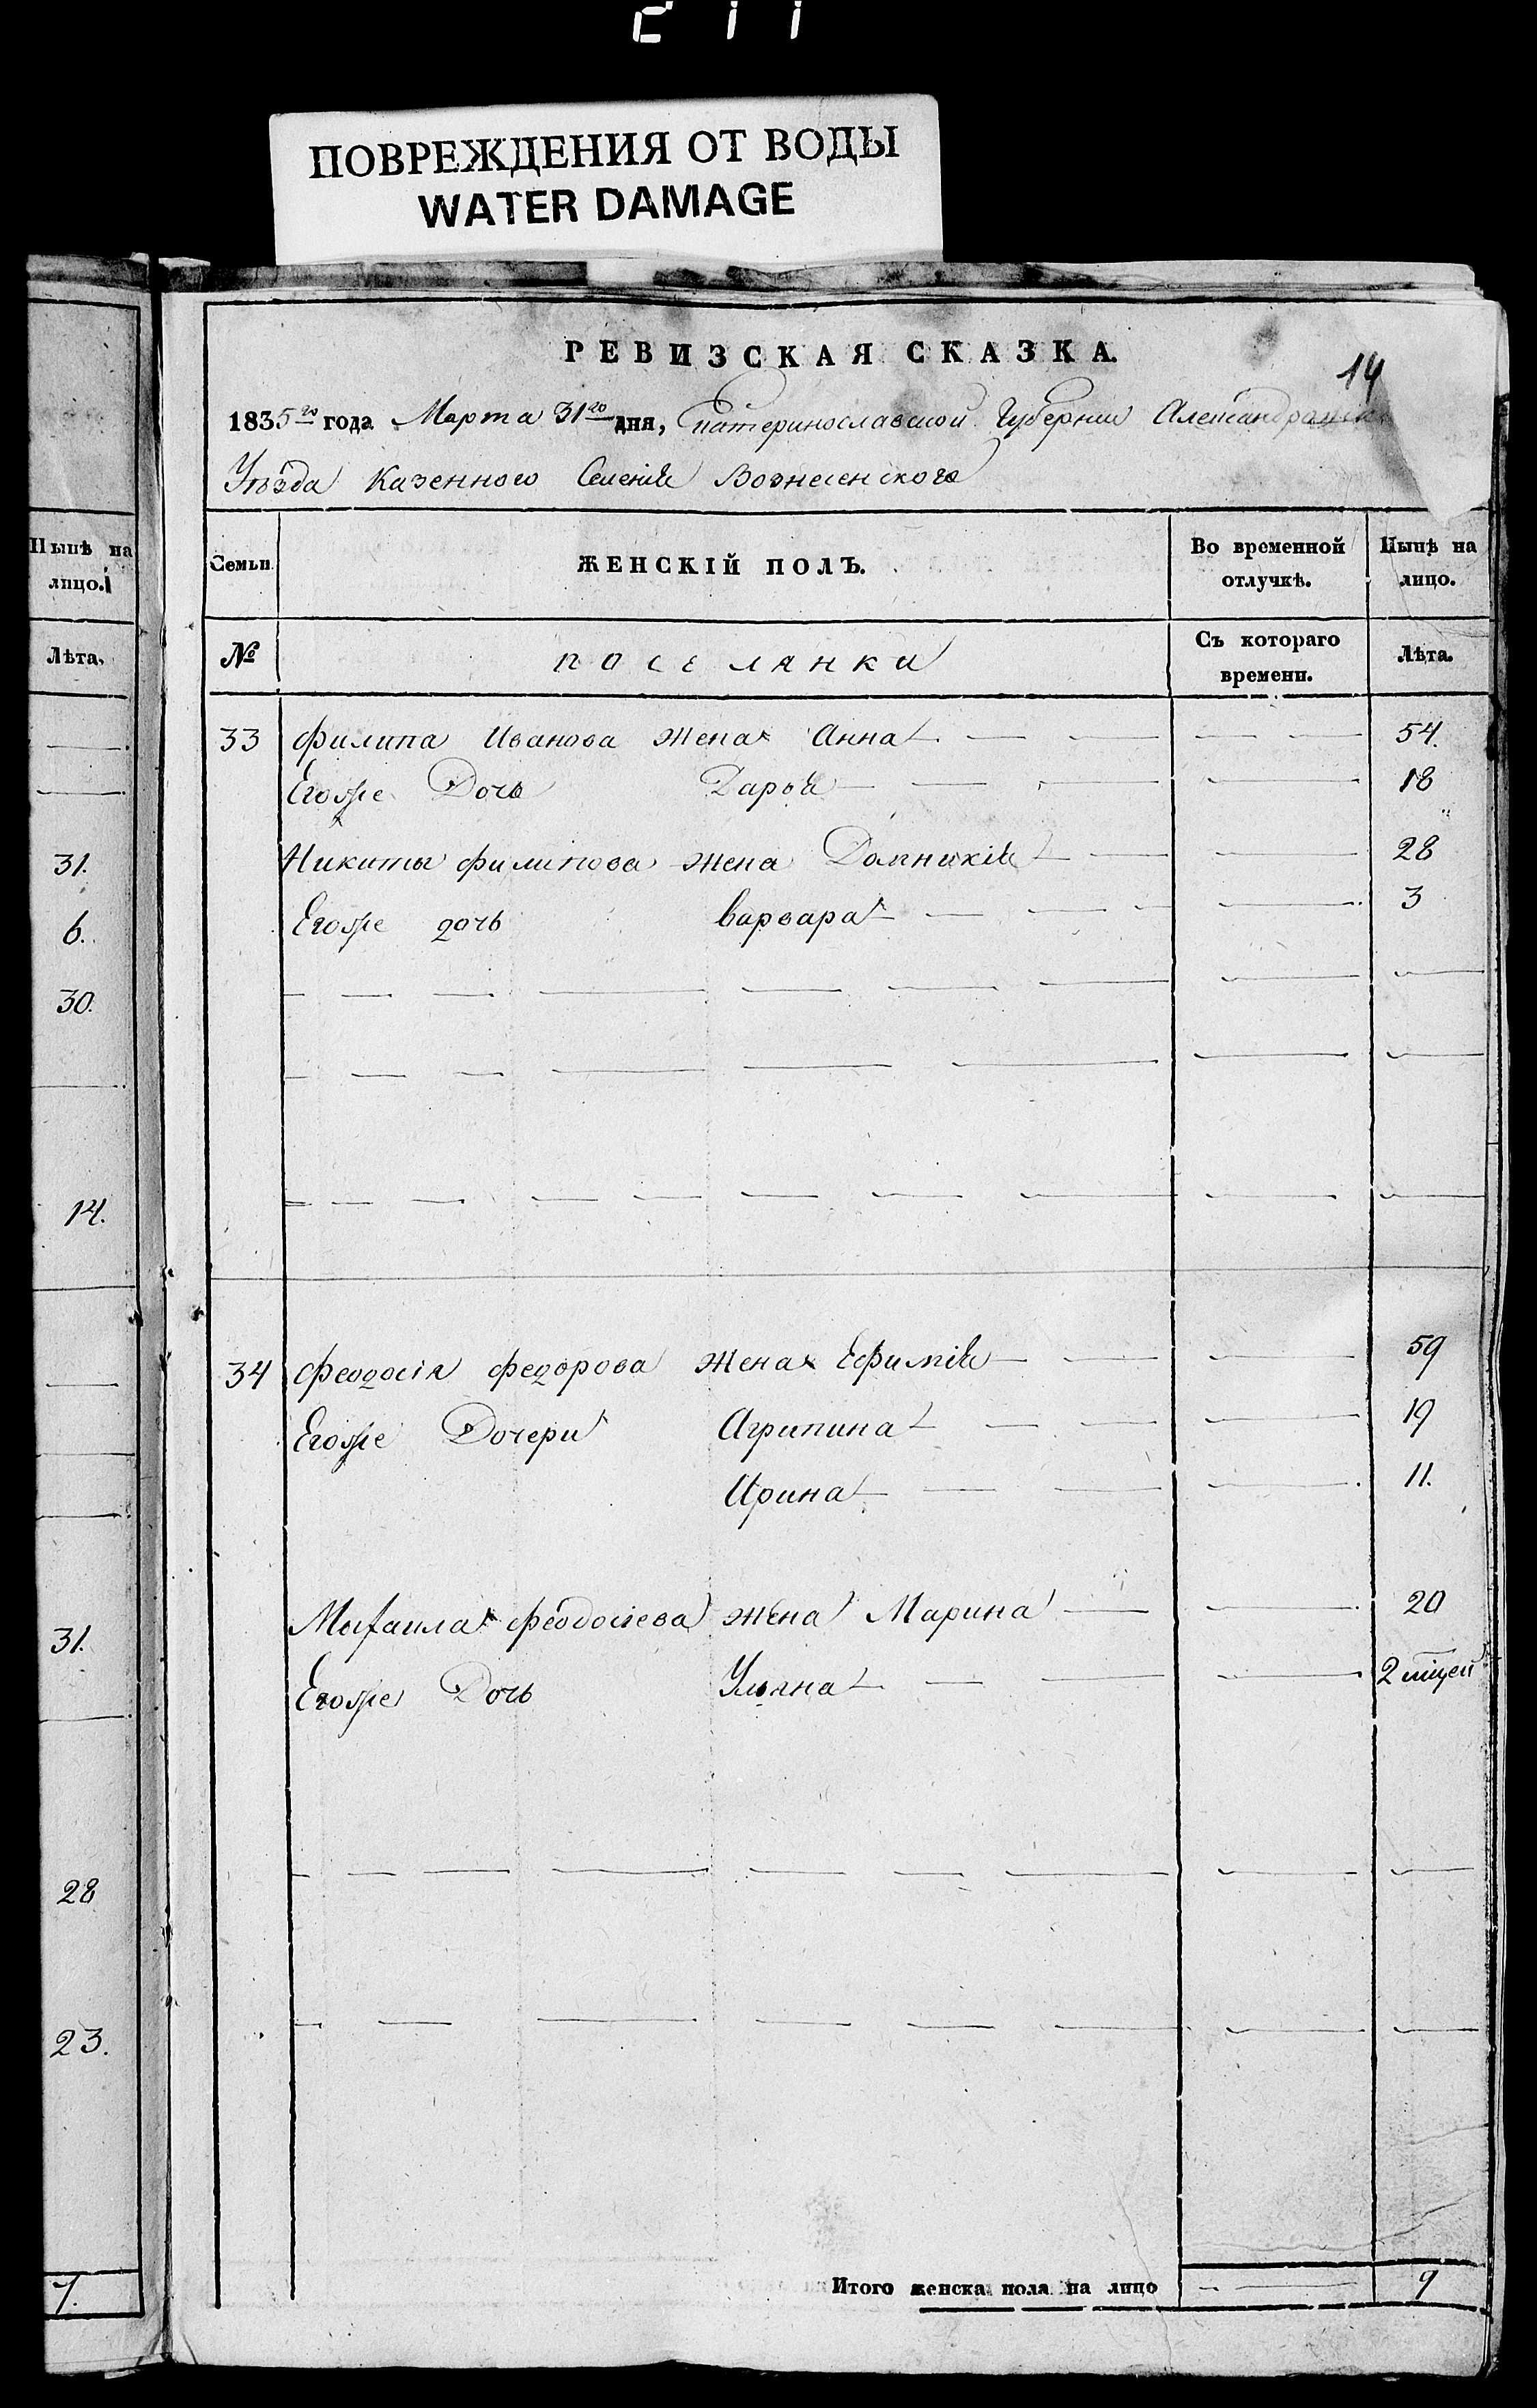 211
ПОВРЕЖДЕНИЯ ОТ ВОДЫ
WATER DAMAGE
Нынѣ на
лицо.
Лѣта.
31.
6.
30.
14.
31.
28
23.
7.
РЕВИЗСКАЯ СКАЗКА.
14
1835го года Марта 31го дня, Екатеринославской Губернии
Уѣзда Казенного Селенія Вознесенского
Семьи.
ЖЕНСКІЙ ПОЛЪ.
Во временной отлучкѣ.
Нынѣ на лицо.
№
поселянки
Съ котораго времени.
Лѣта.
33 Филипа Иванова жена Анна — — — — — 54.
Егоже Дочь Дарья — — — — 18
Никиты Филипова жена Домникія — — — 28
Егоже дочь Варвара — — — — — 3
34 Феодосія Федорова жена Ефимія — — — — 59
Егоже Дочери Агрипина — — — — 19
Ирина — — — — 11.
Михаила Феодосіева жена Марина — — 20
Егоже Дочь Ульяна — — — — 2 мцей
Итого женска пола на лицо — 9